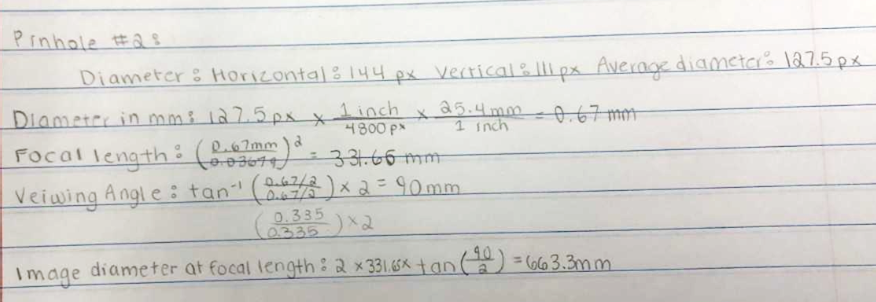 Pinhole #2:
Diameter: Horizontal: 144 px Vertical: 111px Average diameter: 127.5px
Diameter in mm: 127.5px x 1 inch/4800px x 25.4mm/1 inch = 0.67 mm
Focal length: (0.67mm/0.03679)² = 331.66 mm
Veiwing Angle: tan⁻¹ (0.67/2/0.67/2) x 2 = 90mm
(0.335/0.335) x 2
Image diameter at focal length: 2 x 331.6x tan(90/2) = 663.3mm